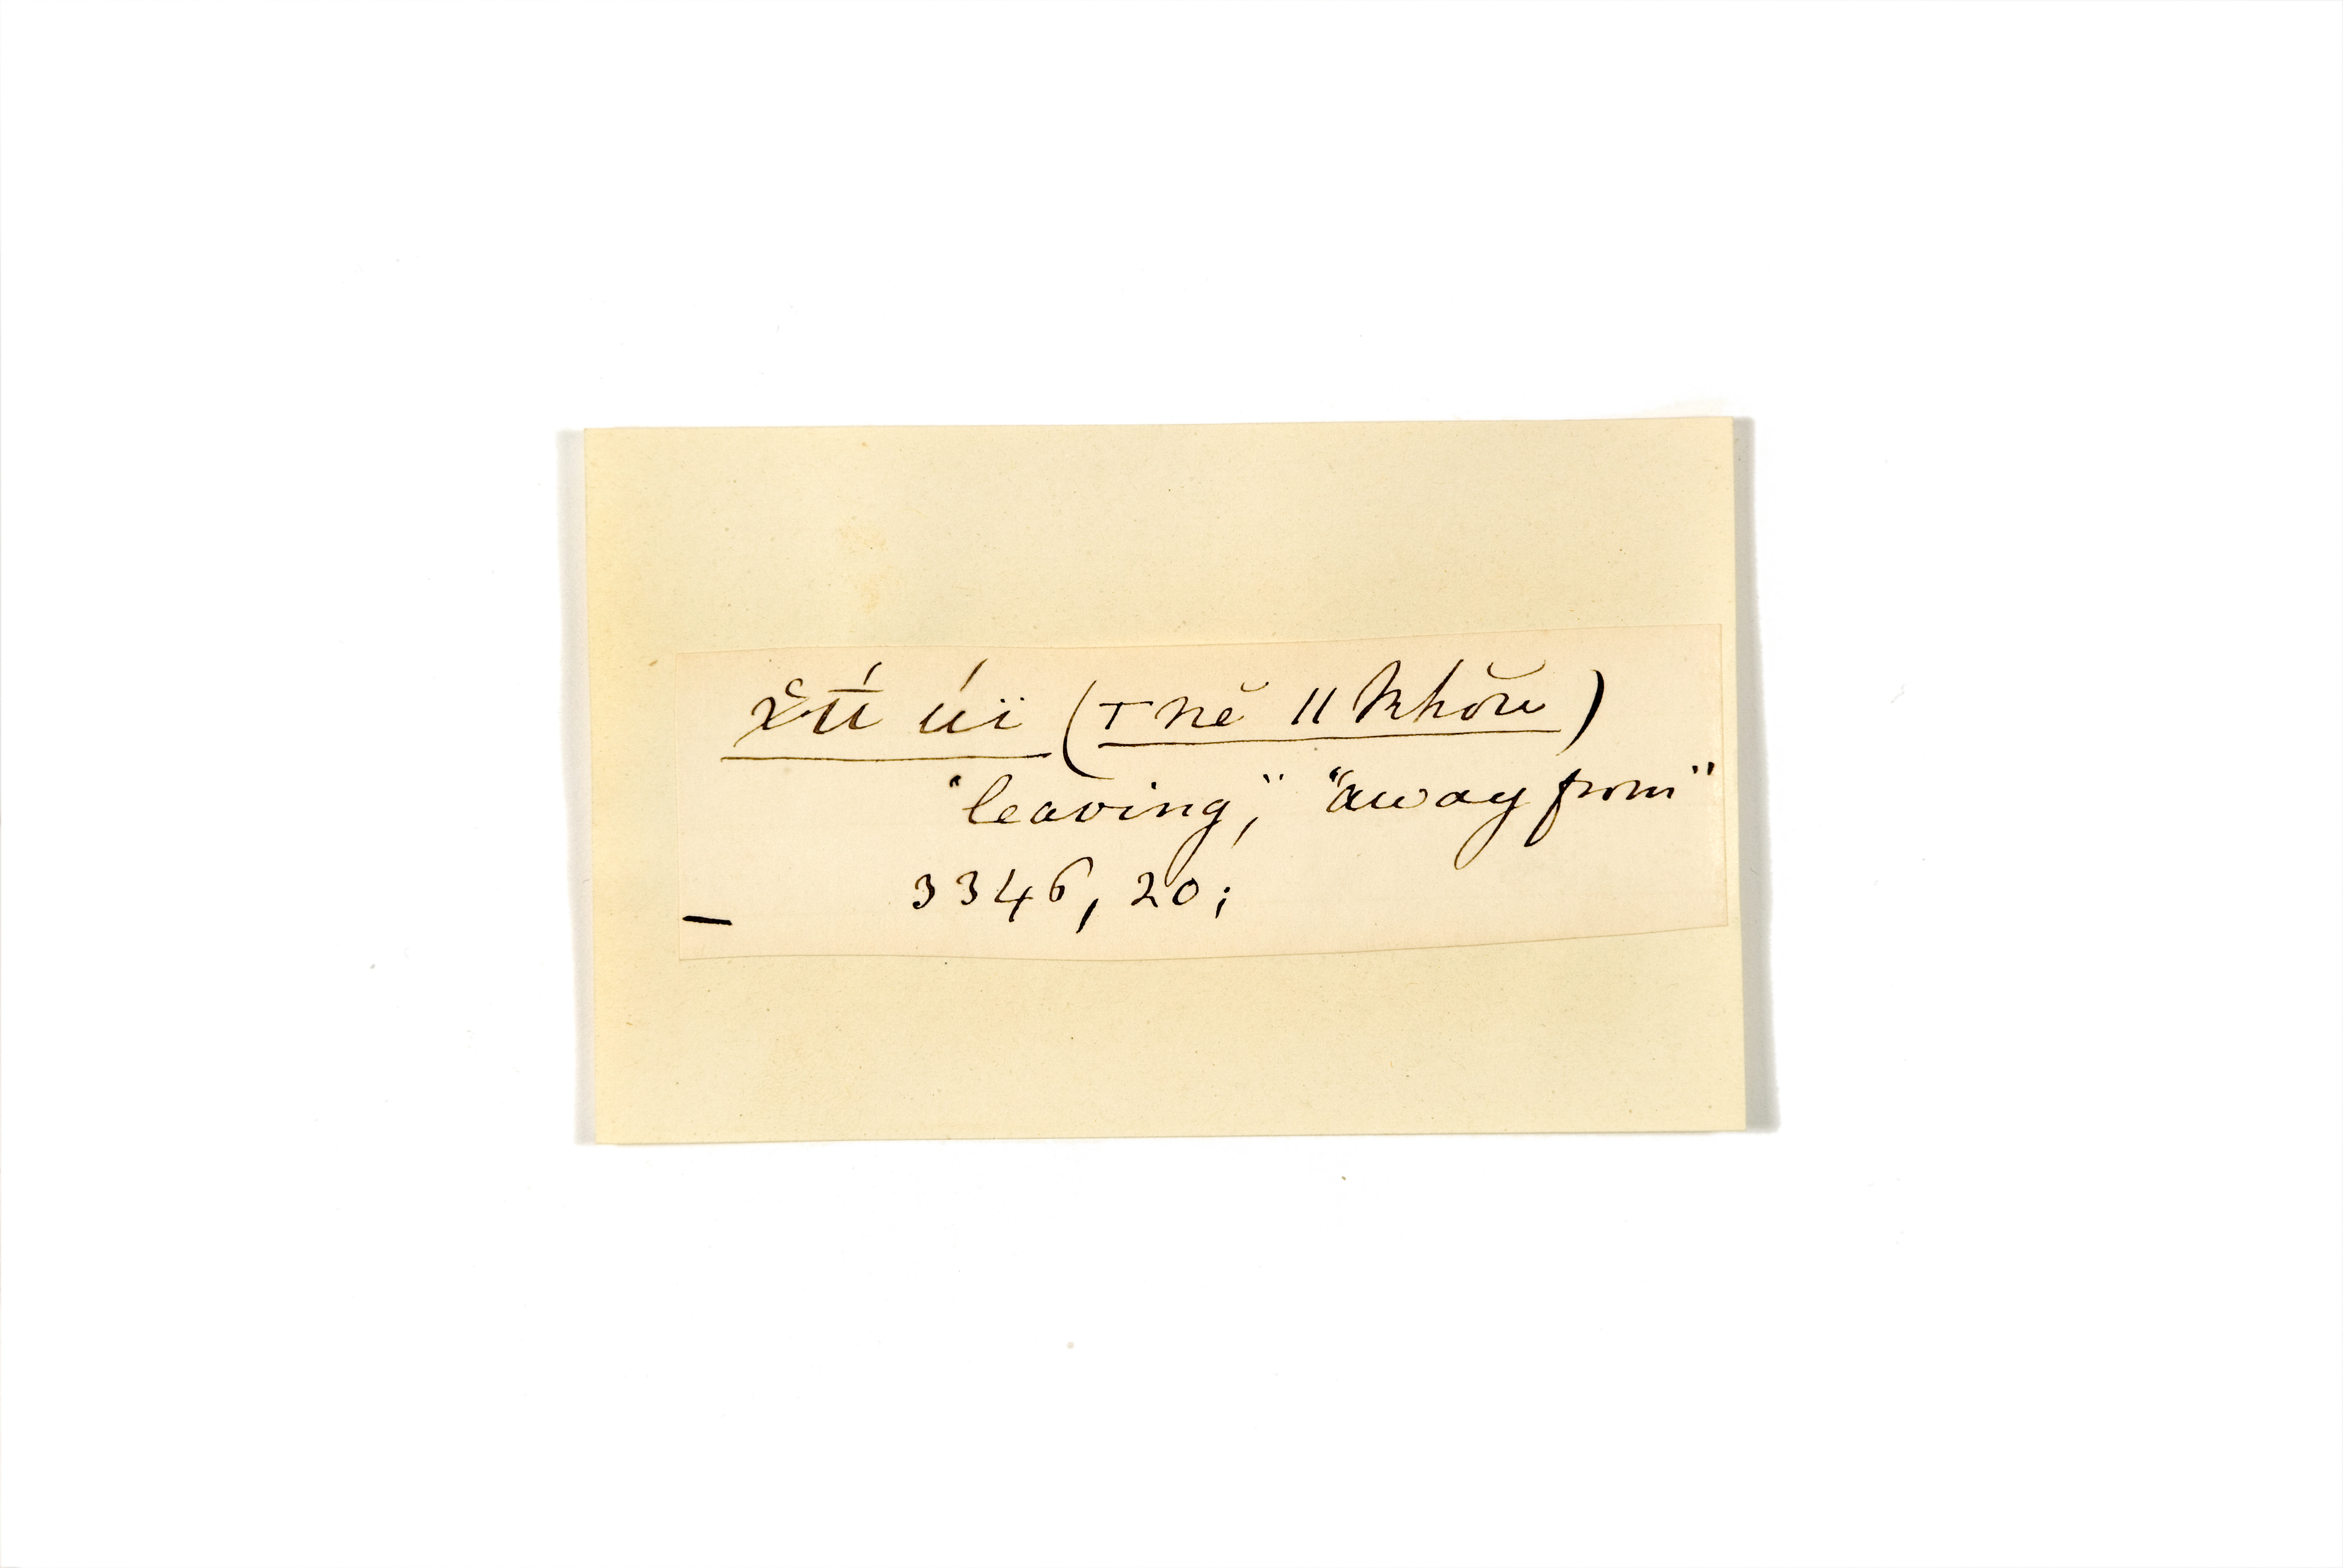 χū́ úï (ꞁnĕ ǁkhŏu)
"leaving," "away from"
3346, 20;
—